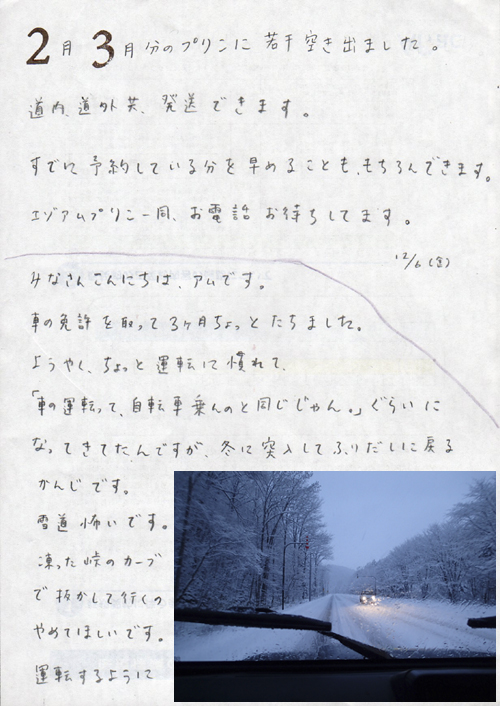 2月3月分のプリンに若干空き出ました。
道内、道外共、発送できます。
すでに予約している分を早めることも、もちろんできます。
エゾアムプリン一同、お電話お待ちしてます。
12/6(金)
みなさんこんにちは、アムです。
車の免許を取って3ヶ月ちょっとたちました。
ようやく、ちょっと運転に慣れて、
「車の運転って、自転車乗んのと同じじゃん。」ぐらいに
なってきてたんですが、冬に突入してふりだしに戻る
かんじです。
雪道怖いです。
凍った峠のカーブ
で抜かして行くの
やめてほしいです。
運転するように